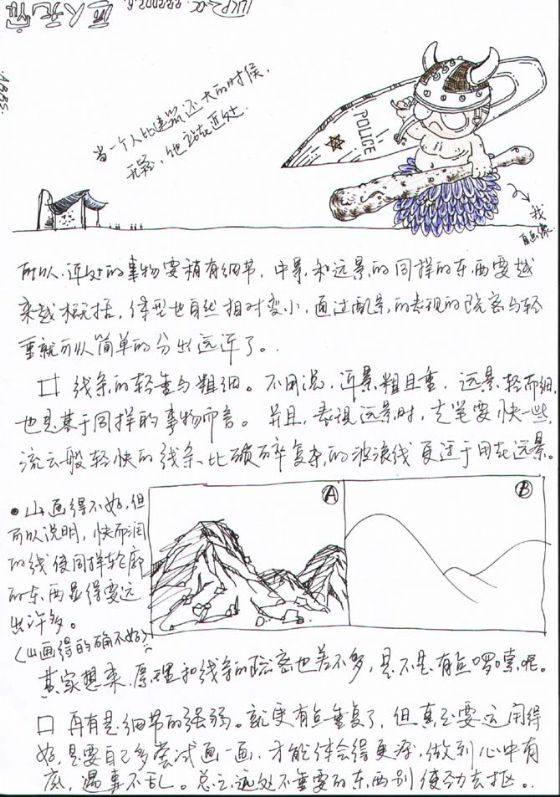 1885.
当一个人比建筑还大的时候,
无疑,他站在近处.
POLICE
我
自画像
所以,近处的事物要稍有细节,中景和远景的同样的东西要越
来越概括,体型也自然相对变小,通过画景的表现的疏密与轻
重就可以简单的分出远近了。
口 线条的轻重与粗细。不用说,近景粗且重,远景轻而细,
也是基于同样的事物而言。并且,表现远景时,走笔要快一些,
流云般轻快的线条比琐碎复杂的波浪线更适于用在远景。
●山画得不好,但
可以说明,快而润
的线使同样轮廓
的东西显得要远
出许多。
(山画得的确不好)
A
B
其实想来,原理和线条的疏密也差不多,是不是有点啰嗦呢。
口 再有是细节的强弱。就更有点重复了,但真正要运用得
好,是要自己多尝试画一画,才能体会得更深,做到心中有
底,遇事不乱。总之,远处不重要的东西别使劲去抠。